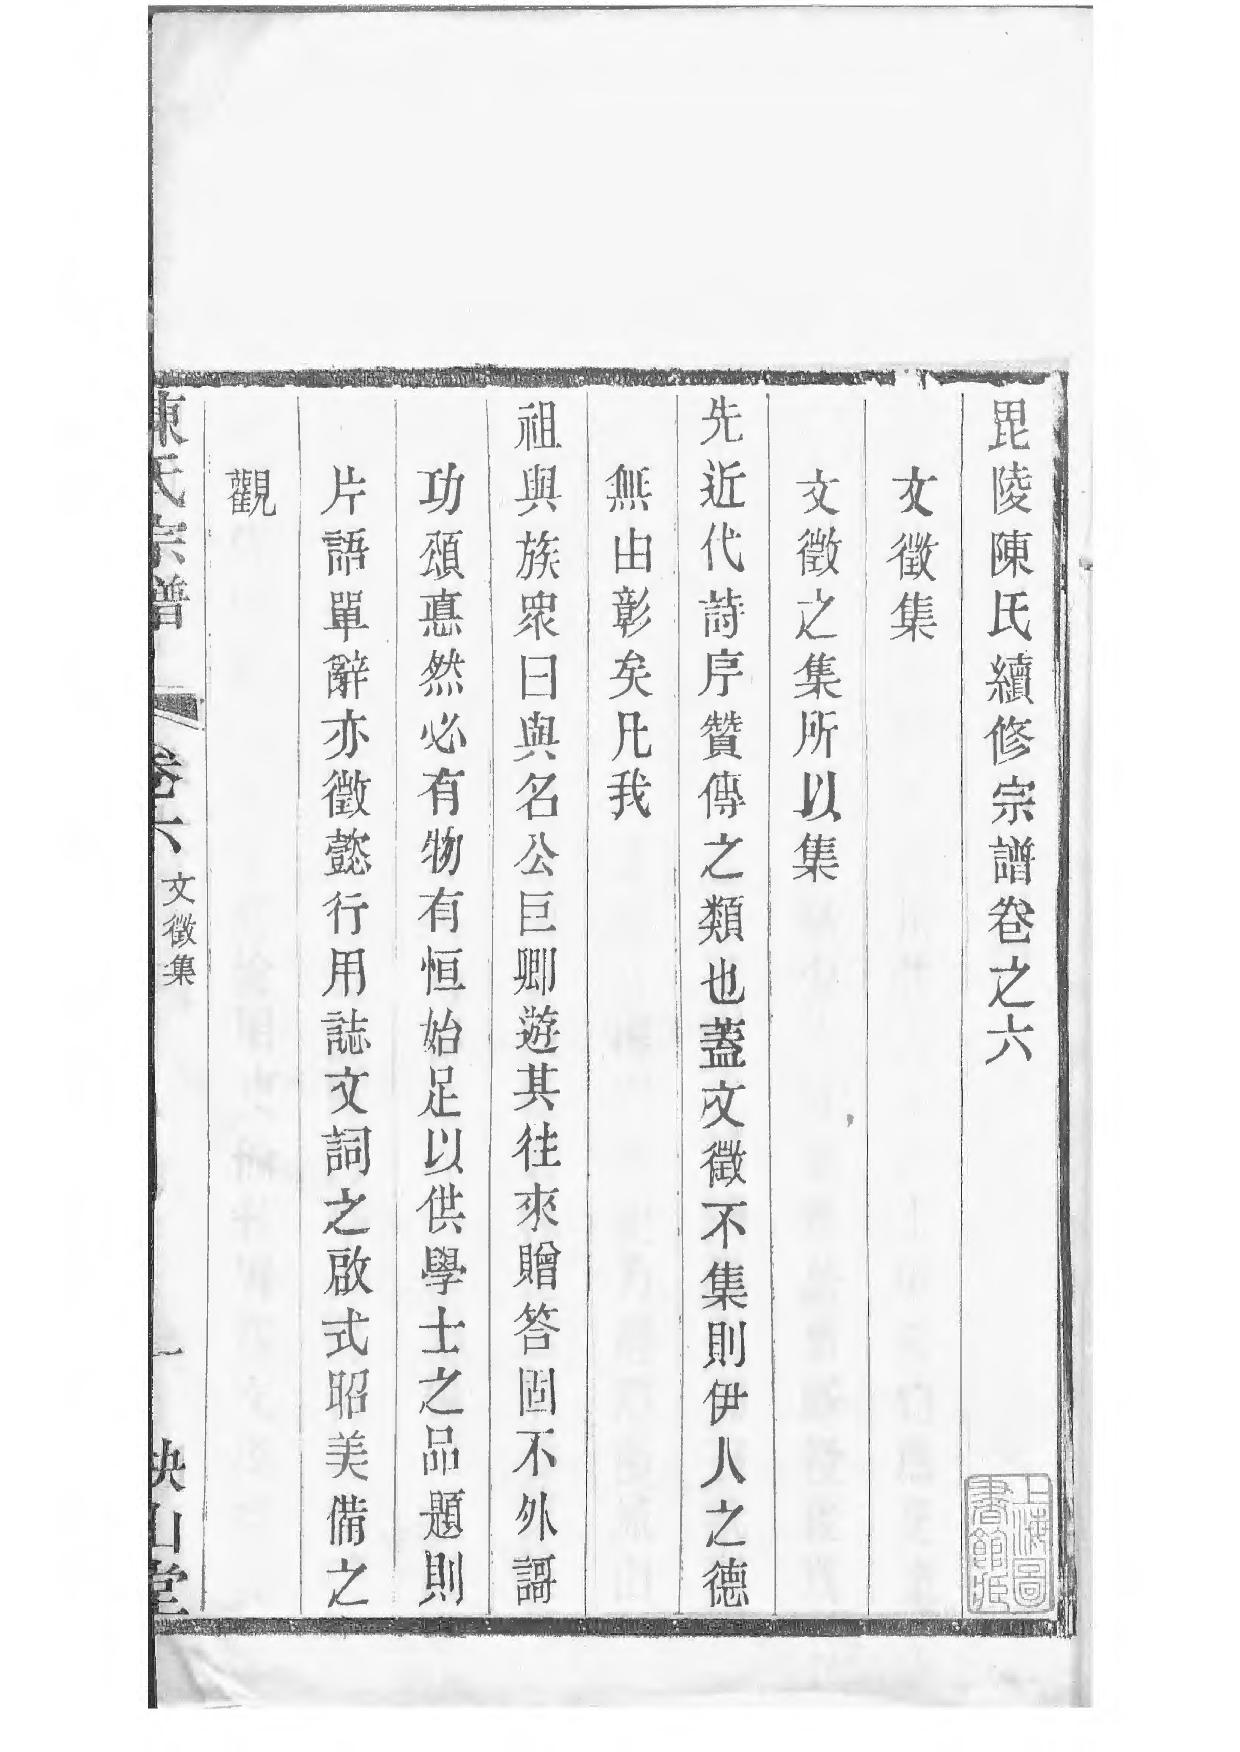 毘陵陳氏續修宗譜卷之六
文徵集
文徵之集所以集
先近代詩序贊傳之類也蓋文徵不集則伊人之德
無由彰矣凡我
祖與族衆曰與名公巨卿遊其往來贈答固不外謌
功頌悳然必有物有恒始足以供學士之品題則
片語單辭亦徵懿行用誌文詞之啟式昭美備之
觀
陳氏宗譜
卷六
文徵集
一
映山堂
上海圖
書館藏